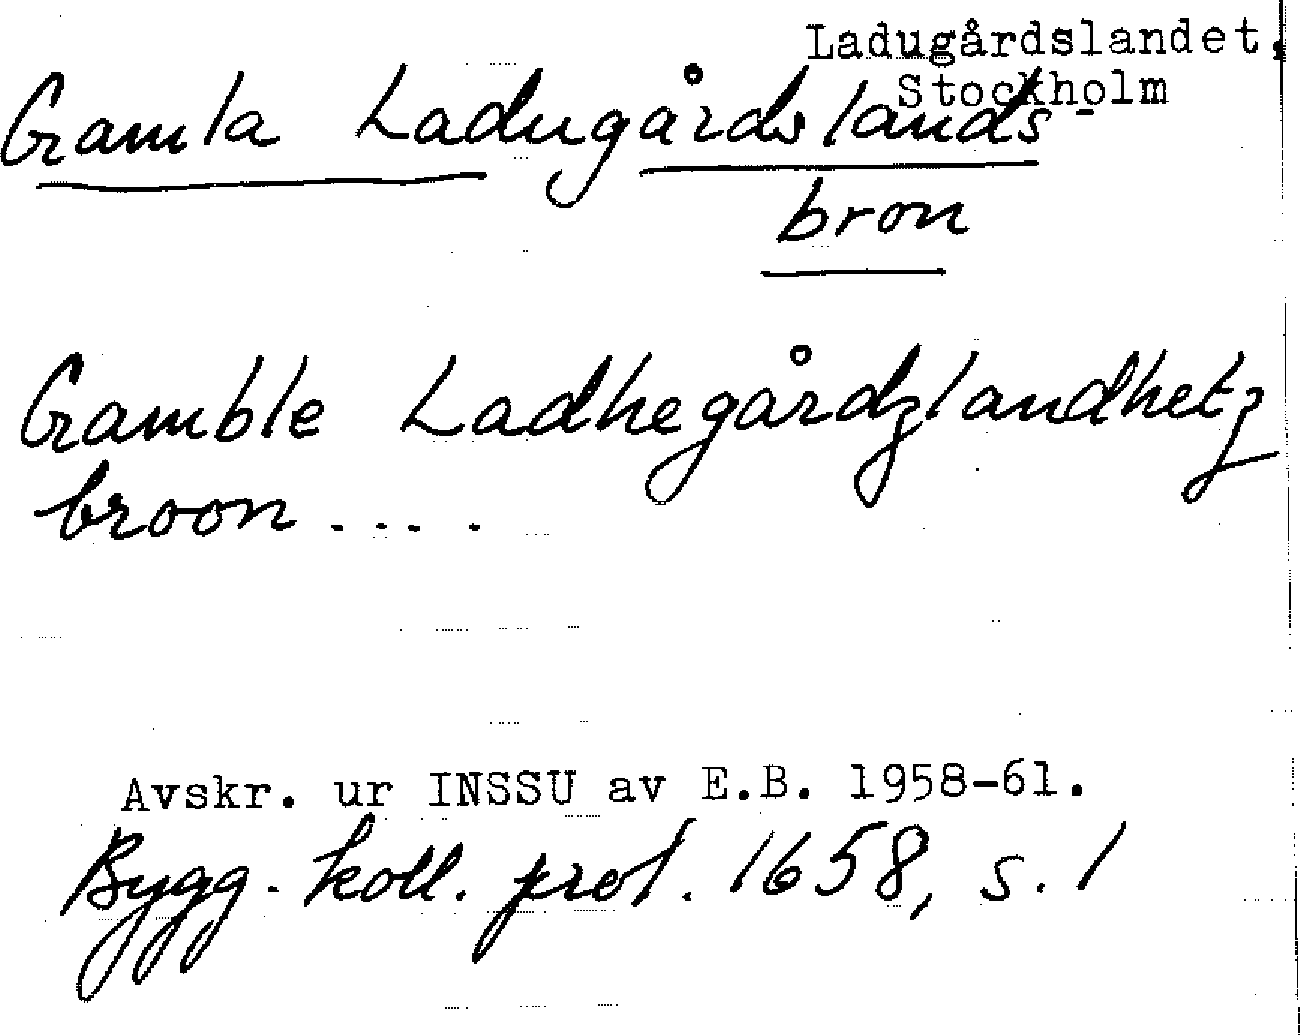 Ladugårdslandet.
Stockholm
Gamla Ladugårdslands-
bron
Gamble Ladhegårdzlandhetz
broon....
Avskr. ur INSSU av E.B. 1958-61.
Bygg. koll. prot. 1658, s. 1